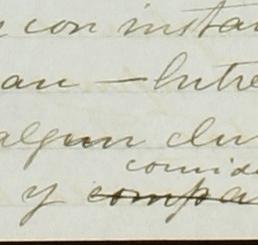 con insta
an — Entre
algun du
comid
y compa